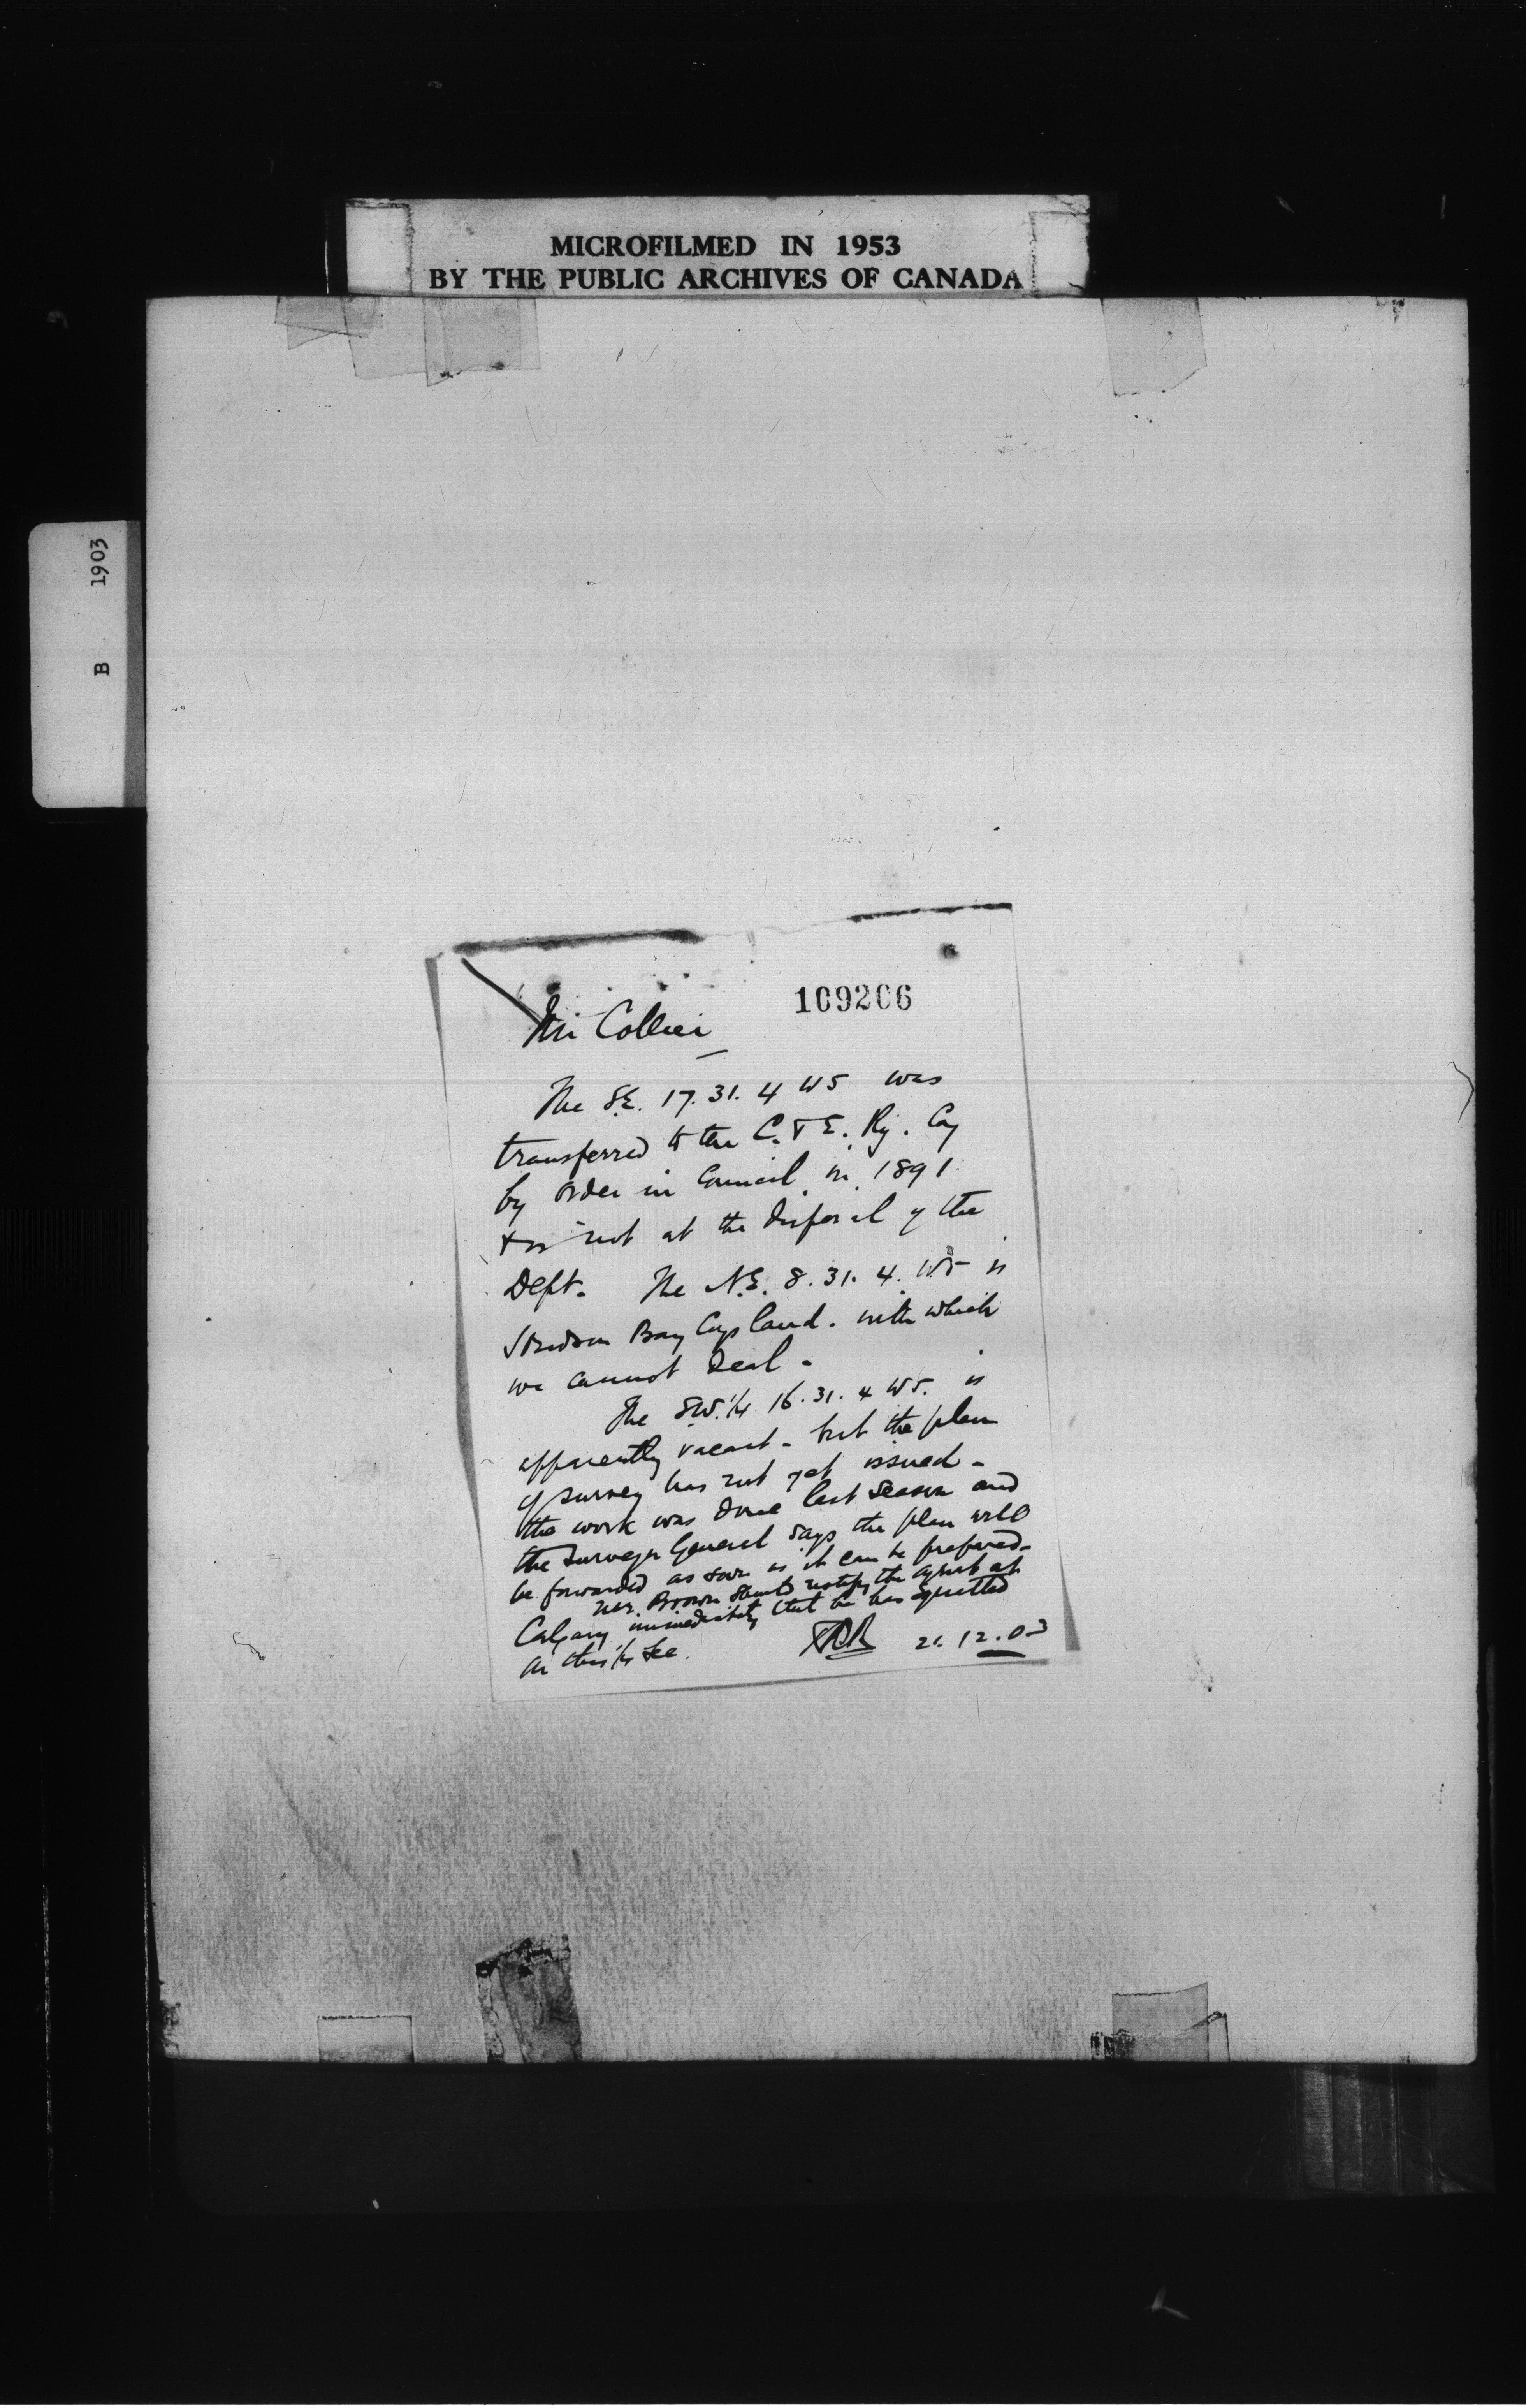 MICROFILMED IN 1953
BY THE PUBLIC ARCHIVES OF CANADA
B 1903
109206
Mr Collier
The S.E. 17. 31. 4 W5 was
transferred to the C. & E. Ry. Coy
by order in Council in 1891
& is not at the disposal of the
Dept. The N.E. 8. 31. 4. W5 is
Hudson Bay Coys land. with which
we cannot deal.
The S.W. 1/4 16. 31. 4 W5. is
apparently vacant - but the plan
of survey has not yet issued -
the work was done last season and
the Surveyor General says the plan will
be forwarded as soon as it can be prepared -
Mr. Brown should notify the agent at
Calgary immediately that he has squatted
on this 1/4 Sec.
21. 12. 03